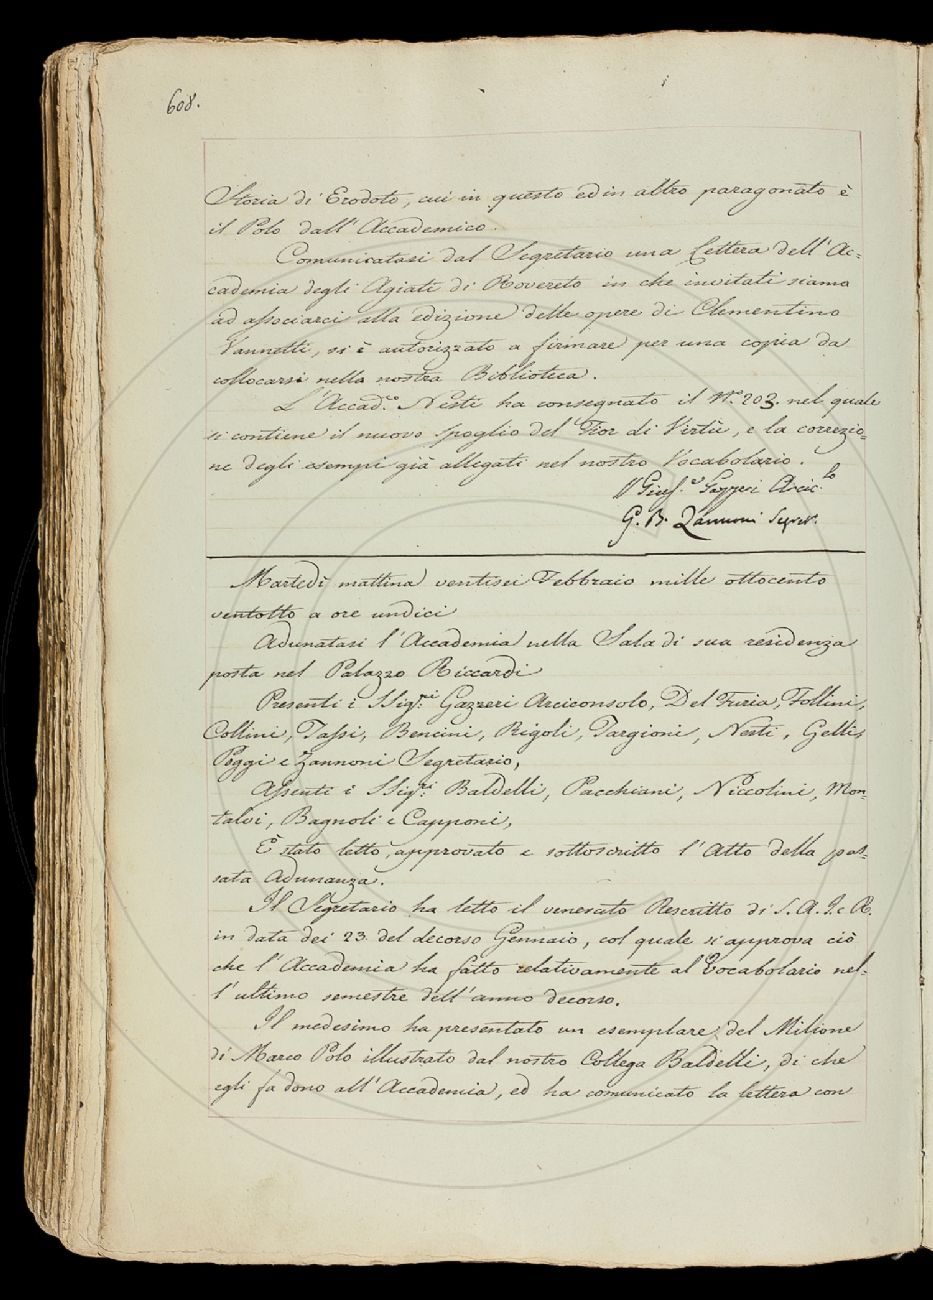 608.
Storia di Erodoto, cui in questo ed in altro paragonato è
il Polo dall'Accademico.
Comunicatasi dal Segretario una Lettera dell'Ac=
cademia degli Agiati di Rovereto in che invitati siamo
ad associarci alla edizione delle opere di Clementino
Vannetti, si è autorizzato a firmare per una copia da
collocarsi nella nostra Biblioteca.
L'Accad.co Nesti ha consegnato il N.o 203. nel quale
si contiene il nuovo spoglio del Fior di Virtù, e la correzio=
ne degli esempi già allegati nel nostro Vocabolario.
Gius.e Gazzeri Arcic.lo
G. B. Zannoni Segret.
Martedì mattina ventisei Febbraio mille ottocento
ventotto a ore undici
Adunatasi l'Accademia nella Sala di sua residenza
posta nel Palazzo Riccardi
Presenti i SSig.ri Gazzeri Arciconsolo, Del Furia, Follini,
Collini, Tassi, Bencini, Rigoli, Targioni, Nesti, Gelli,
Poggi e Zannoni Segretario,
Assenti i SSig.ri Baldelli, Pacchiani, Niccolini, Mon=
talvi, Bagnoli e Capponi,
È stato letto, approvato e sottoscritto l'Atto della pas=
sata Adunanza.
Il Segretario ha letto il venerato Rescritto di S. A. I. e R.
in data dei 23 del decorso Gennaio, col quale si approva ciò
che l'Accademia ha fatto relativamente al Vocabolario nel=
l'ultimo semestre dell'anno decorso.
Il medesimo ha presentato un esemplare del Milione
di Marco Polo illustrato dal nostro Collega Baldelli, di che
egli fa dono all'Accademia, ed ha comunicato la lettera con